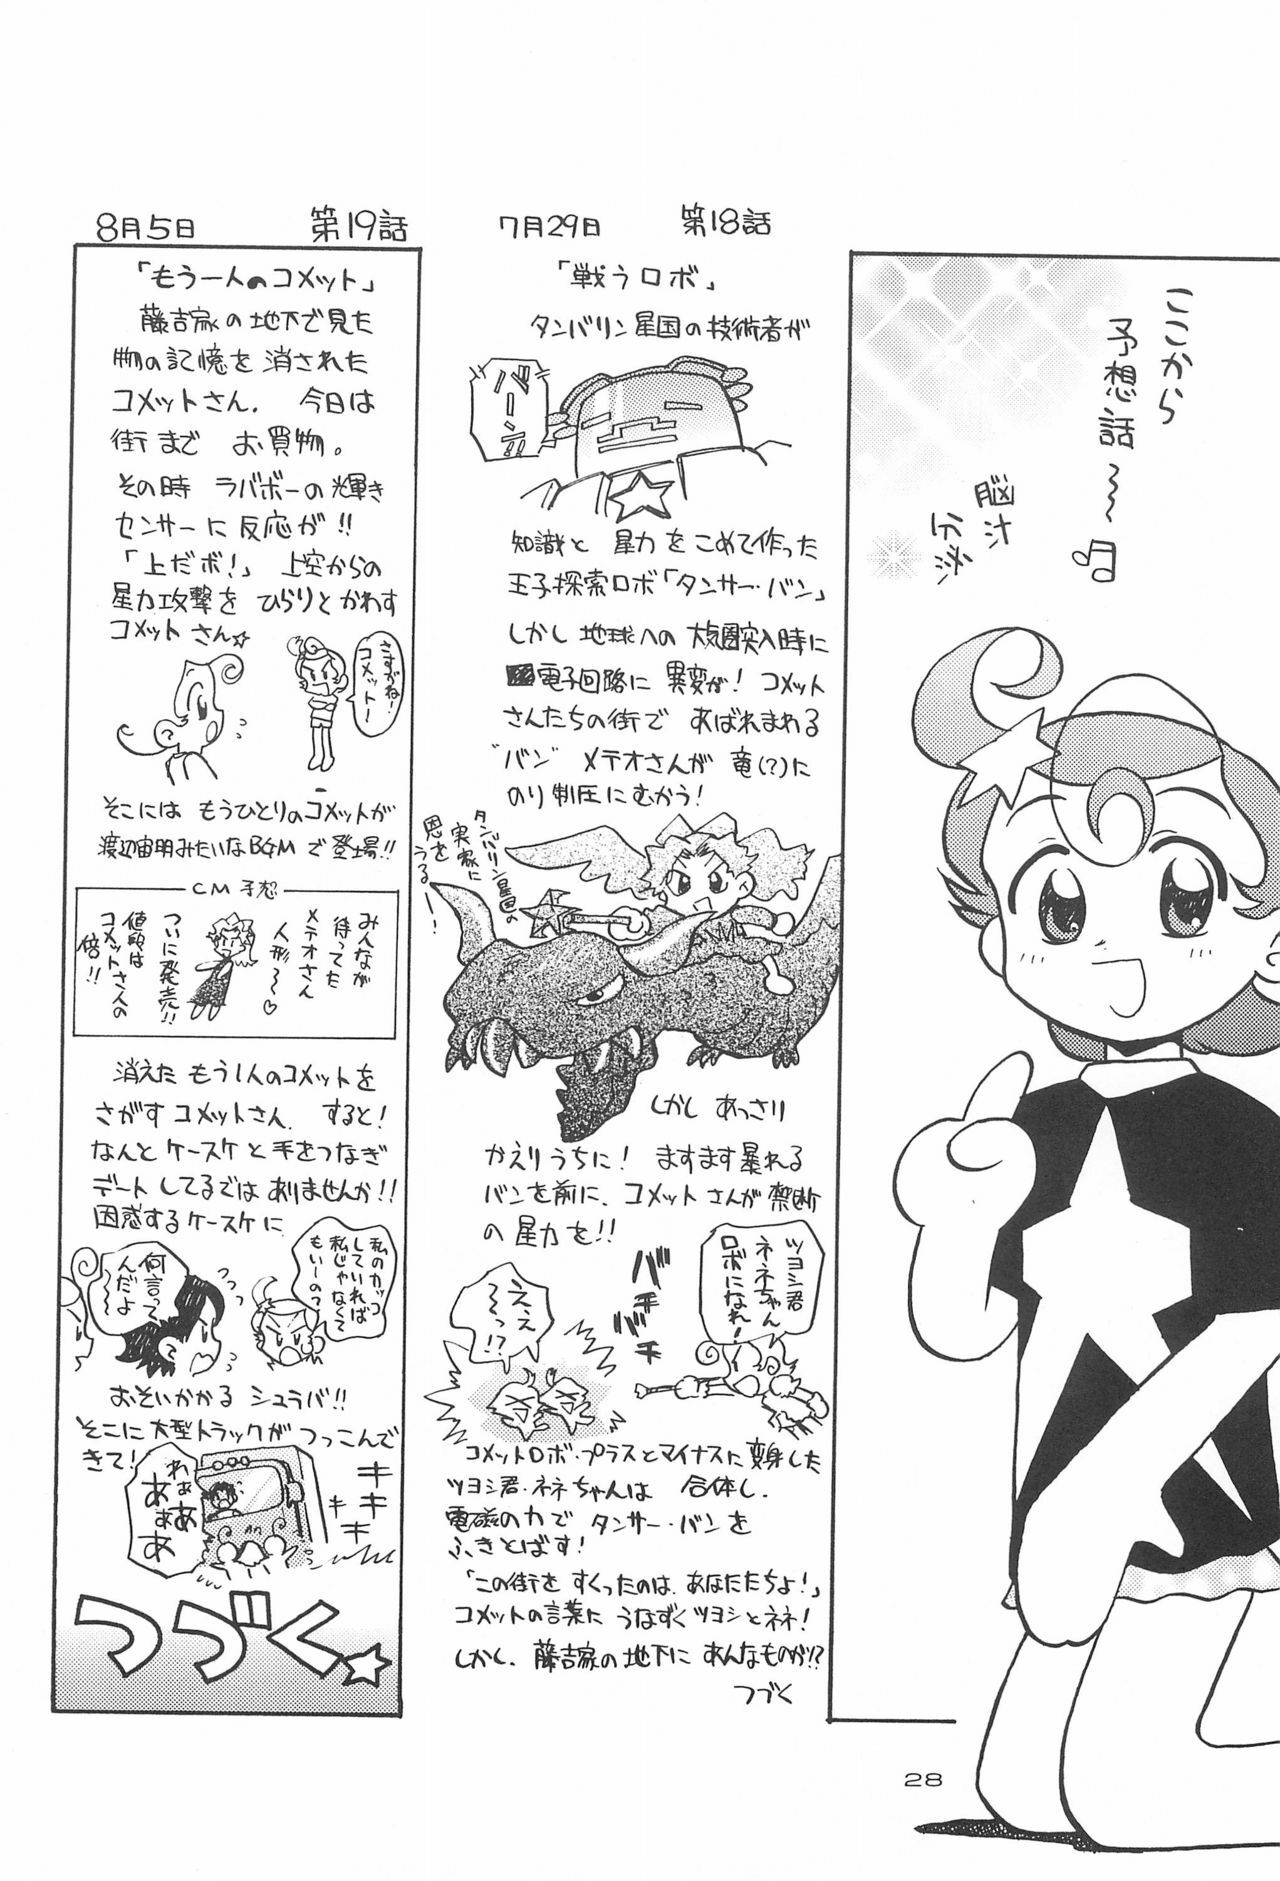 ここから
予想話〜〜♪
脳汁
分泌
7月29日　第18話
「戦うロボ」
タンバリン星国の技術者が
バーン!!
知識と星力をこめて作った
王子探索ロボ「タンサー・バン」
しかし地球への大気圏突入時に
電子回路に異変が！コメット
さんたちの街であばれまわる
"バン"メテオさんが竜(?)に
のり制圧にむかう！
タンバリン星国の
実家に
恩を
うる〜！
しかしあっさり
かえりうちに！ますます暴れる
バンを前に、コメットさんが禁断
の星力を!!
ツヨシ君
ネネちゃん
ロボになれ！
バチバチ
ええ
〜っ!?
コメットロボ・プラスとマイナスに変身した
ツヨシ君・ネネちゃんは合体し、
電磁の力でタンサー・バンを
ふきとばす！
「この街をすくったのは、あなたたちよ！」
コメットの言葉にうなずくツヨシとネネ！
しかし、藤吉家の地下にあんなものが!?
つづく
8月5日　第19話
「もう一人のコメット」
藤吉家の地下で見た
物の記憶を消された
コメットさん。今日は
街までお買物。
その時ラバボーの輝き
センサーに反応が!!
「上だボ！」上空からの
星力攻撃をひらりとかわす
コメットさん☆
さすがね！
コメットー
そこにはもうひとりのコメットが
渡辺宙明みたいなBGMで登場!!
CM予想
みんなが
待ってた
メテオさん
人形〜♡
ついに発売!!
値段は
コメットさんの
倍!!
消えたもう1人のコメットを
さがすコメットさん。すると！
なんとケースケと手をつなぎ
デートしてるではありませんか!!
困惑するケースケに
私のカッコ
していれば
私じゃなくて
もいーの?
何言って
んだよ
〜
おそいかかるシュラバ!!
そこに大型トラックがつっこんで
きて！
キキキ
わぁ
あぁ
あぁ
あ
つづく☆
28